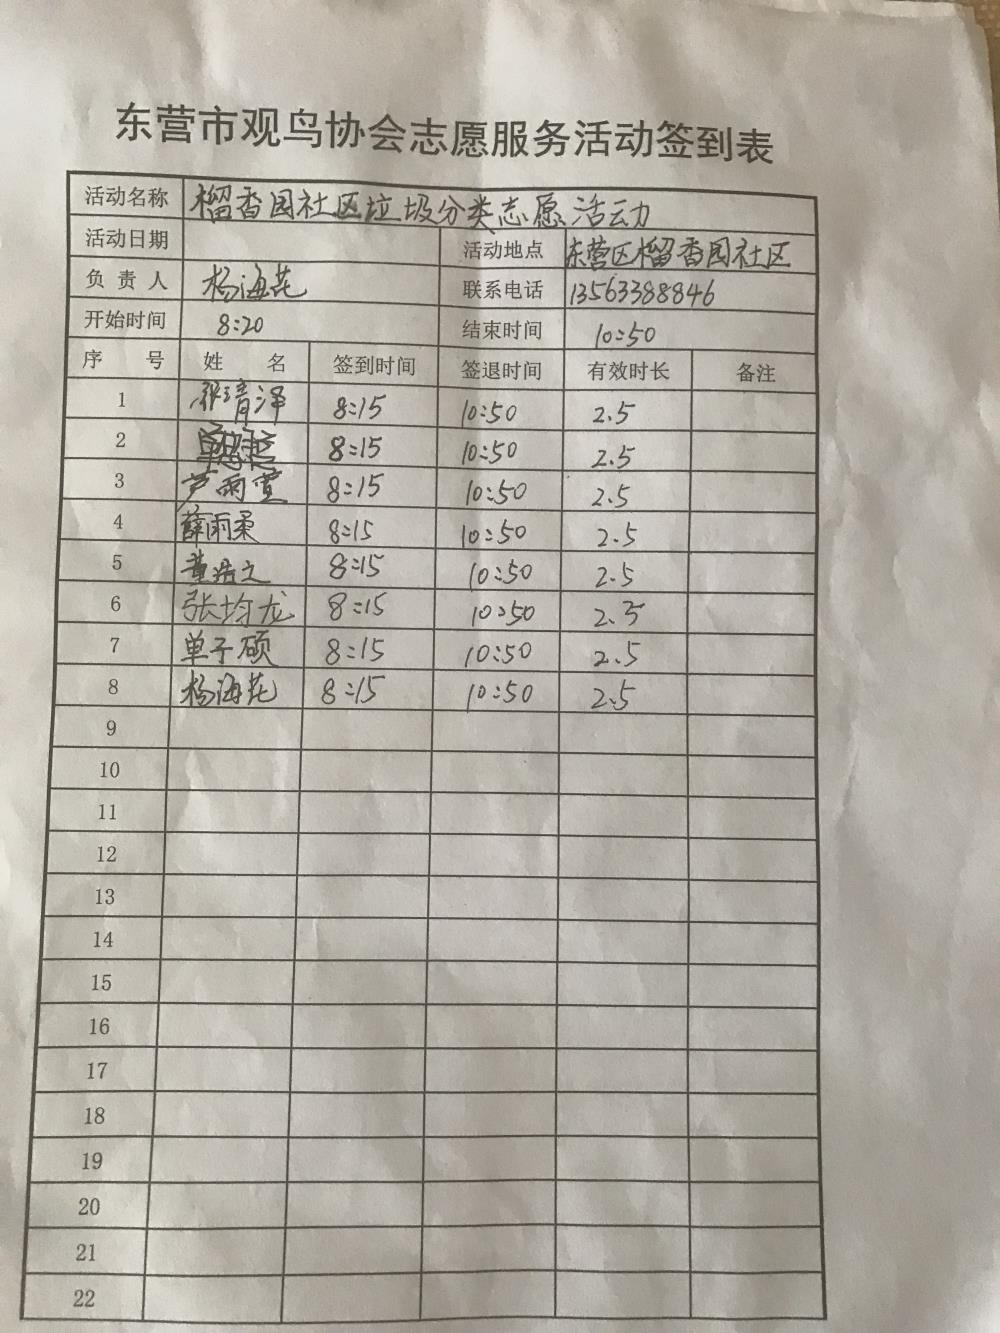 东营市观鸟协会志愿服务活动签到表
活动名称 榴香园社区垃圾分类志愿活动
活动日期 活动地点 东营区榴香园社区
负责人 杨海花 联系电话 13563388846
开始时间 8:20 结束时间 10:50
序号 姓名 签到时间 签退时间 有效时长 备注
1 张清泽 8:15 10:50 2.5
2 8:15 10:50 2.5
3 芦雨萱 8:15 10:50 2.5
4 薛雨柔 8:15 10:50 2.5
5 董浩文 8:15 10:50 2.5
6 张均龙 8:15 10:50 2.5
7 单子硕 8:15 10:50 2.5
8 杨海花 8:15 10:50 2.5
9
10
11
12
13
14
15
16
17
18
19
20
21
22